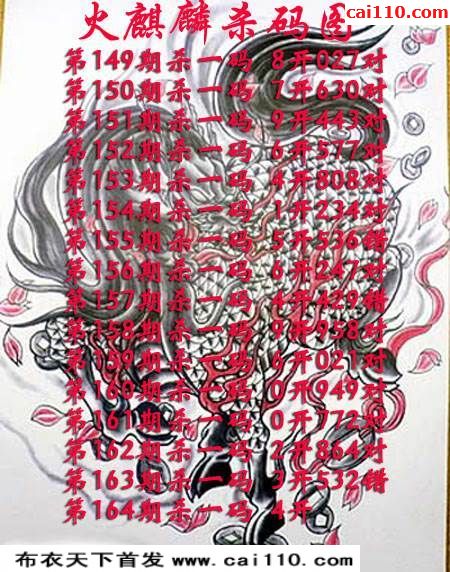 cai110.com
火麒麟杀码图
第149期杀一码 8开027对
第150期杀一码 7开630对
第151期杀一码 9开443对
第152期杀一码 6开577对
第153期杀一码 4开808对
第154期杀一码 1开234对
第155期杀一码 5开536错
第156期杀一码 6开247对
第157期杀一码 4开429错
第158期杀一码 9开958对
第159期杀一码 6开021对
第160期杀一码 0开949对
第161期杀一码 0开772对
第162期杀一码 2开864对
第163期杀一码 3开532错
第164期杀一码 4开
布衣天下首发 www.cai110.com